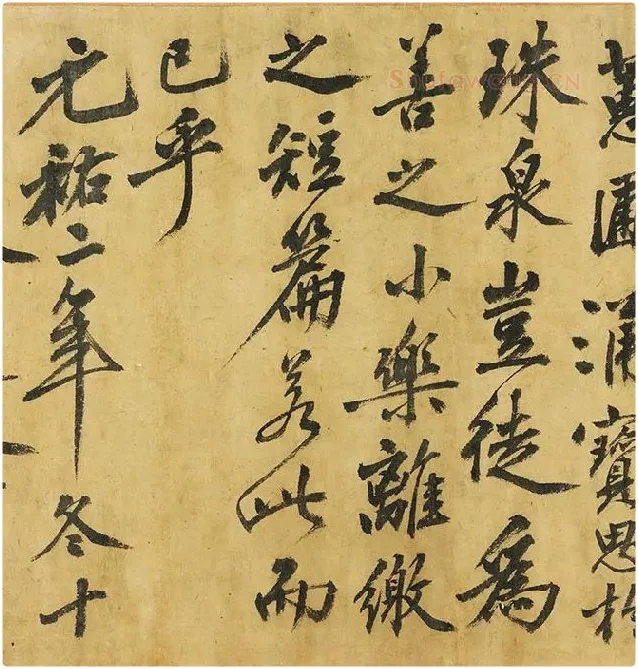 蕙圃涌寶思於
珠泉豈徒為
善之小樂離繳
之短篇若此而
已乎
元祐二年冬十